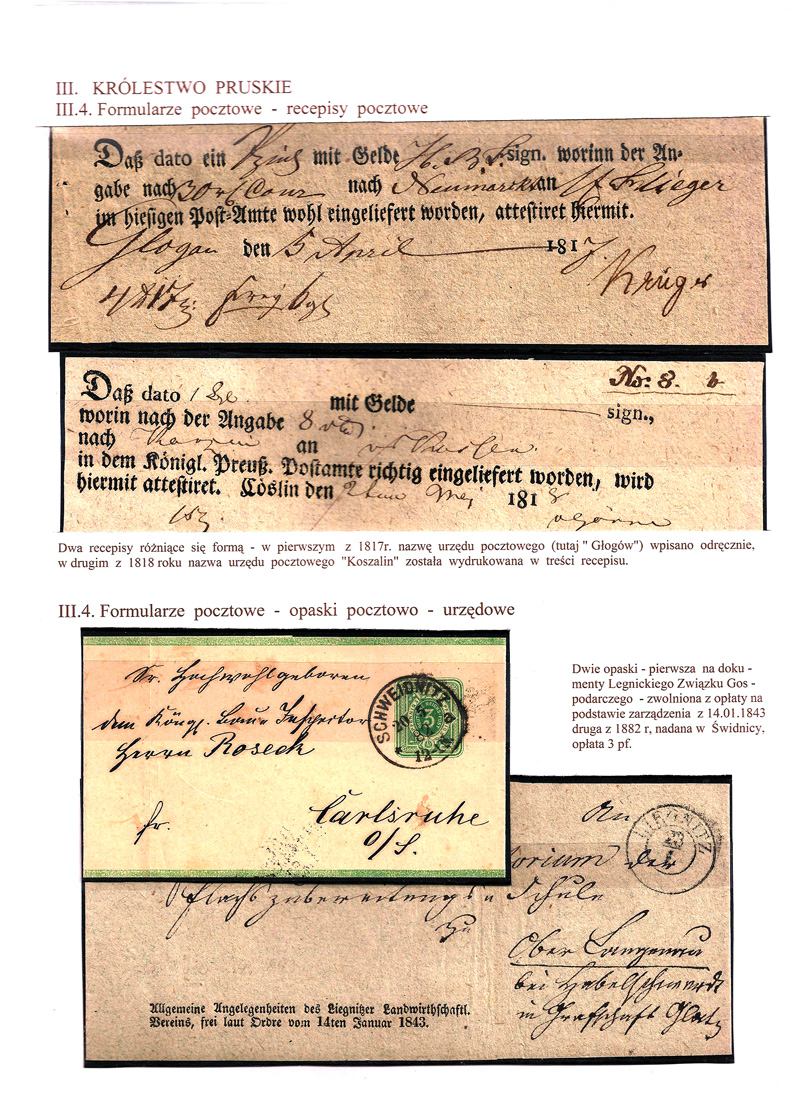 III. KRÓLESTWO PRUSKIE
III.4. Formularze pocztowe - recepisy pocztowe
Daß dato ein mit Gelde H. B. S. sign. worinn der An-
gabe nach 30 Cour nach Neumarck an
im hiesigen Post-Amte wohl eingeliefert worden, attestiret hiermit.
Glogau den 5 April 1817.
Krüger
No: 8.
Daß dato 1 mit Gelde sign.,
worin nach der Angabe 8
nach an
in dem Königl. Preuß. Postamte richtig eingeliefert worden, wird
hiermit attestiret. Cöslin den 1818
Dwa recepisy różniące się formą - w pierwszym z 1817r. nazwę urzędu pocztowego (tutaj " Głogów") wpisano odręcznie,
w drugim z 1818 roku nazwa urzędu pocztowego "Koszalin" została wydrukowana w treści recepisu.
III.4. Formularze pocztowe - opaski pocztowo - urzędowe
Sr. Hochwohlgeboren
dem Königl. Bau- Inspector
Herrn Roseck
fr. Carlsruhe
O/S.
SCHWEIDNITZ
Dwie opaski - pierwsza na doku -
menty Legnickiego Związku Gos -
podarczego - zwolniona z opłaty na
podstawie zarządzenia z 14.01.1843
druga z 1882 r, nadana w Świdnicy,
opłata 3 pf.
An
LIEGNITZ
orium der
Flachszubereitungs Schule
zu
Ober Langenau
bei Habelschwerdt
in Grafschaft Glatz
Allgemeine Angelegenheiten des Liegnitzer Landwirthschaftl.
Vereins, frei laut Ordre vom 14ten Januar 1843.